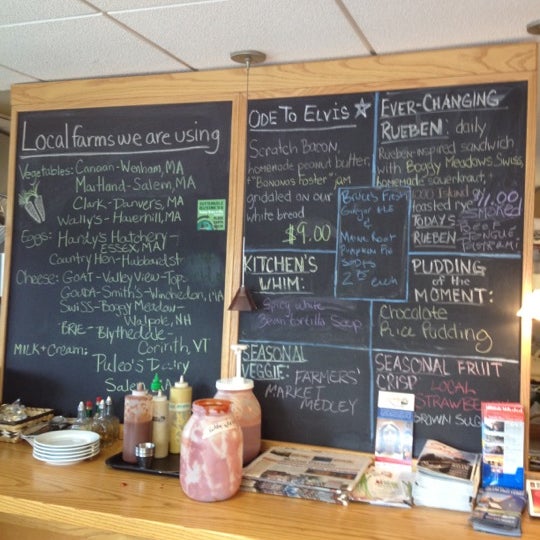 Local farms we are using
Vegetables: Canaan-Wenham, MA
Maitland-Salem, MA
Clark-Danvers, MA
Wally's-Haverhill, MA
Eggs: Handy's Hatchery-
Essex, MA
Country Hen-Hubbardst
Cheese: Goat-Valley View-Top
Gouda-Smith's-Winchendon, MA
Swiss-Boggy Meadow-
Walpole, NH
Brie-Blythedale-
Corinith, VT
Milk + Cream: Puleo's Dairy
Salem
Ode To Elvis
Scratch Bacon,
homemade peanut butter,
+ "Bananas Foster" jam
griddled on our
white bread
$9.00
Bruce's Fresh
Ginger Ale
and
Maine Root
Pumpkin Pie
Sodas
2 each
Kitchen's
Whim:
Spicy white
Bean tortilla Soup
Seasonal
Veggie: Farmers'
Market
Medley
Ever-Changing
Rueben: daily
Rueben-inspired sandwich
with Boggy Meadows Swiss,
homemade sauerkraut,
1000 Island
toasted rye
$11.00
Today's
Rueben-
Smoked
Beef
Tongue
Pastrami
Pudding
of the
Moment:
Chocolate
Rice Pudding
Seasonal Fruit
Crisp
Local
Strawbe
Brown Sug